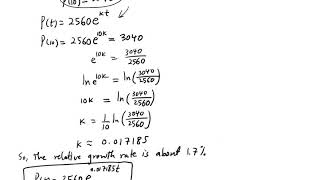 P(t) = 2560e^{kt}
P(10) = 2560e^{10k} = 3040
e^{10k} = 3040/2560
ln e^{10k} = ln(3040/2560)
10k = ln(3040/2560)
k = 1/10 ln(3040/2560)
k ≈ 0.017185
So, the relative growth rate is about 1.7%